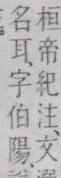 桓帝紀注、文選
名耳、字伯陽、